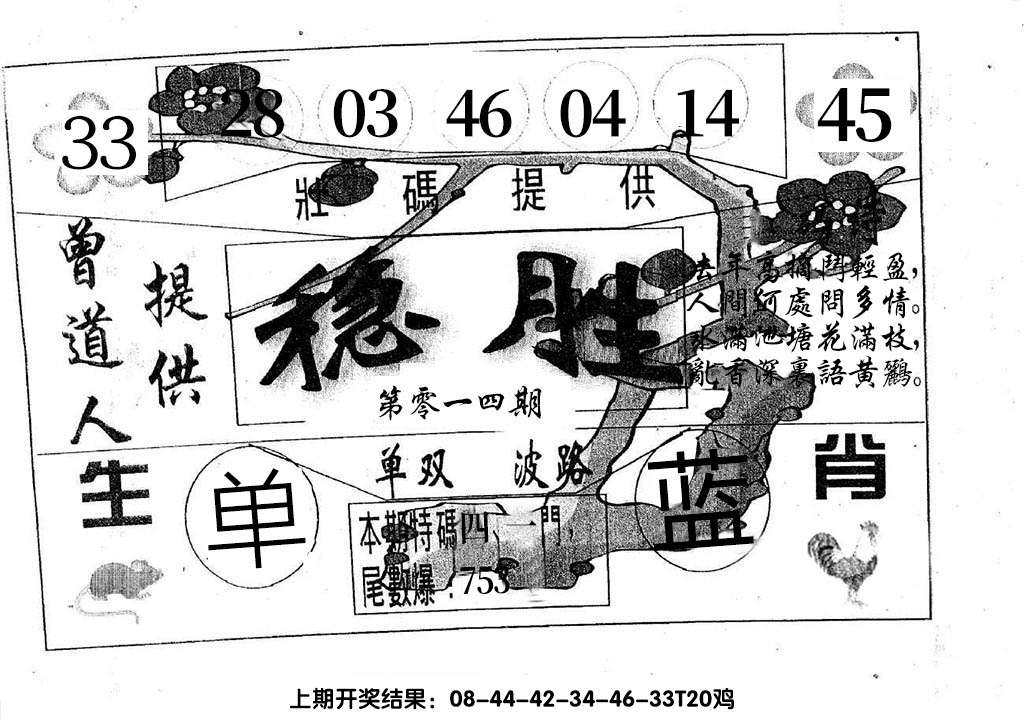 33 28 03 46 04 14 45
壯碼提供
曾道人
提供
稳胜
第零一四期
去年高摘鬥輕盈，
人間何處問多情。
水滿池塘花滿枝，
亂香深裏語黃鸝。
单双 波路
生肖
单
蓝
本期特碼四、一門，
尾數爆：753
上期开奖结果：08-44-42-34-46-33T20鸡